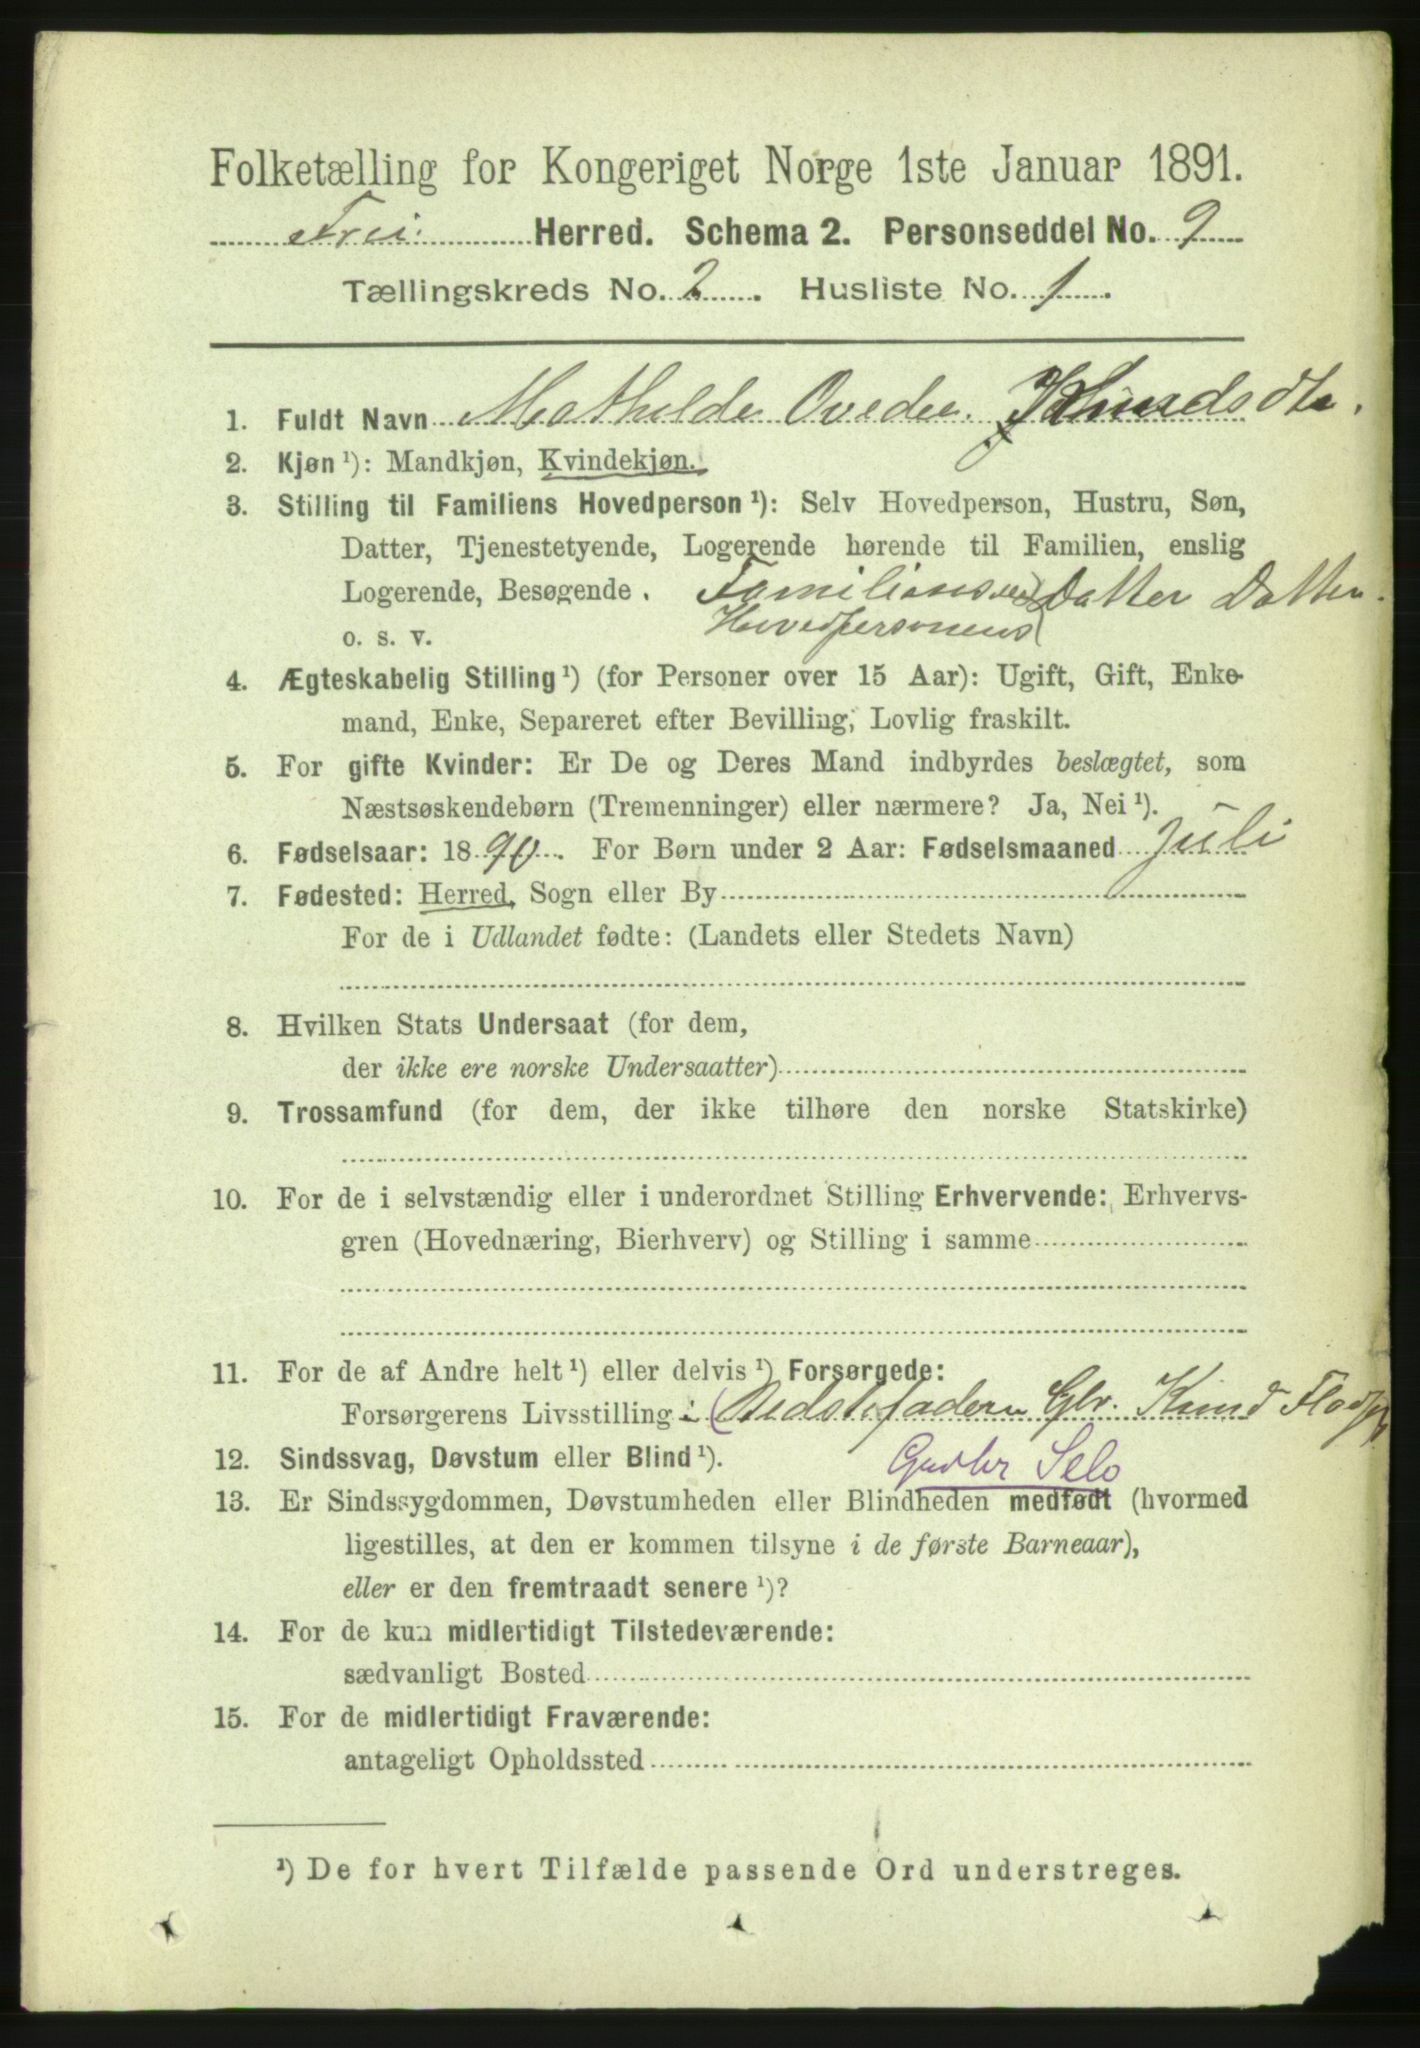 Folketælling for Kongeriget Norge 1ste Januar 1891.
Frei Herred. Schema 2. Personseddel No. 9
Tællingskreds No. 2. Husliste No. 1.
1. Fuldt Navn Mathilde Ovedie Knudsdtr.
2. Kjøn ¹): Mandkjøn, Kvindekjøn.
3. Stilling til Familiens Hovedperson ¹): Selv Hovedperson, Hustru, Søn,
Datter, Tjenestetyende, Logerende hørende til Familien, enslig
Logerende, Besøgende. Familiens Datter Datter.
o. s. v. Hovedpersonens
4. Ægteskabelig Stilling ¹) (for Personer over 15 Aar): Ugift, Gift, Enke-
mand, Enke, Separeret efter Bevilling, Lovlig fraskilt.
5. For gifte Kvinder: Er De og Deres Mand indbyrdes beslægtet, som
Næstsøskendebørn (Tremenninger) eller nærmere? Ja, Nei ¹).
6. Fødselsaar: 1890. For Børn under 2 Aar: Fødselsmaaned Juli
7. Fødested: Herred, Sogn eller By
For de i Udlandet fødte: (Landets eller Stedets Navn)
8. Hvilken Stats Undersaat (for dem,
der ikke ere norske Undersaatter)
9. Trossamfund (for dem, der ikke tilhøre den norske Statskirke)
10. For de i selvstændig eller i underordnet Stilling Erhvervende: Erhvervs-
gren (Hovednæring, Bierhverv) og Stilling i samme
11. For de af Andre helt ¹) eller delvis ¹) Forsørgede:
Forsørgerens Livsstilling: (Bedstefaderen Gbr. Knud
12. Sindssvag, Døvstum eller Blind ¹). Gudbr Selv
13. Er Sindssygdommen, Døvstumheden eller Blindheden medfødt (hvormed
ligestilles, at den er kommen tilsyne i de første Barneaar),
eller er den fremtraadt senere ¹)?
14. For de kun midlertidigt Tilstedeværende:
sædvanligt Bosted
15. For de midlertidigt Fraværende:
antageligt Opholdssted
¹) De for hvert Tilfælde passende Ord understreges.